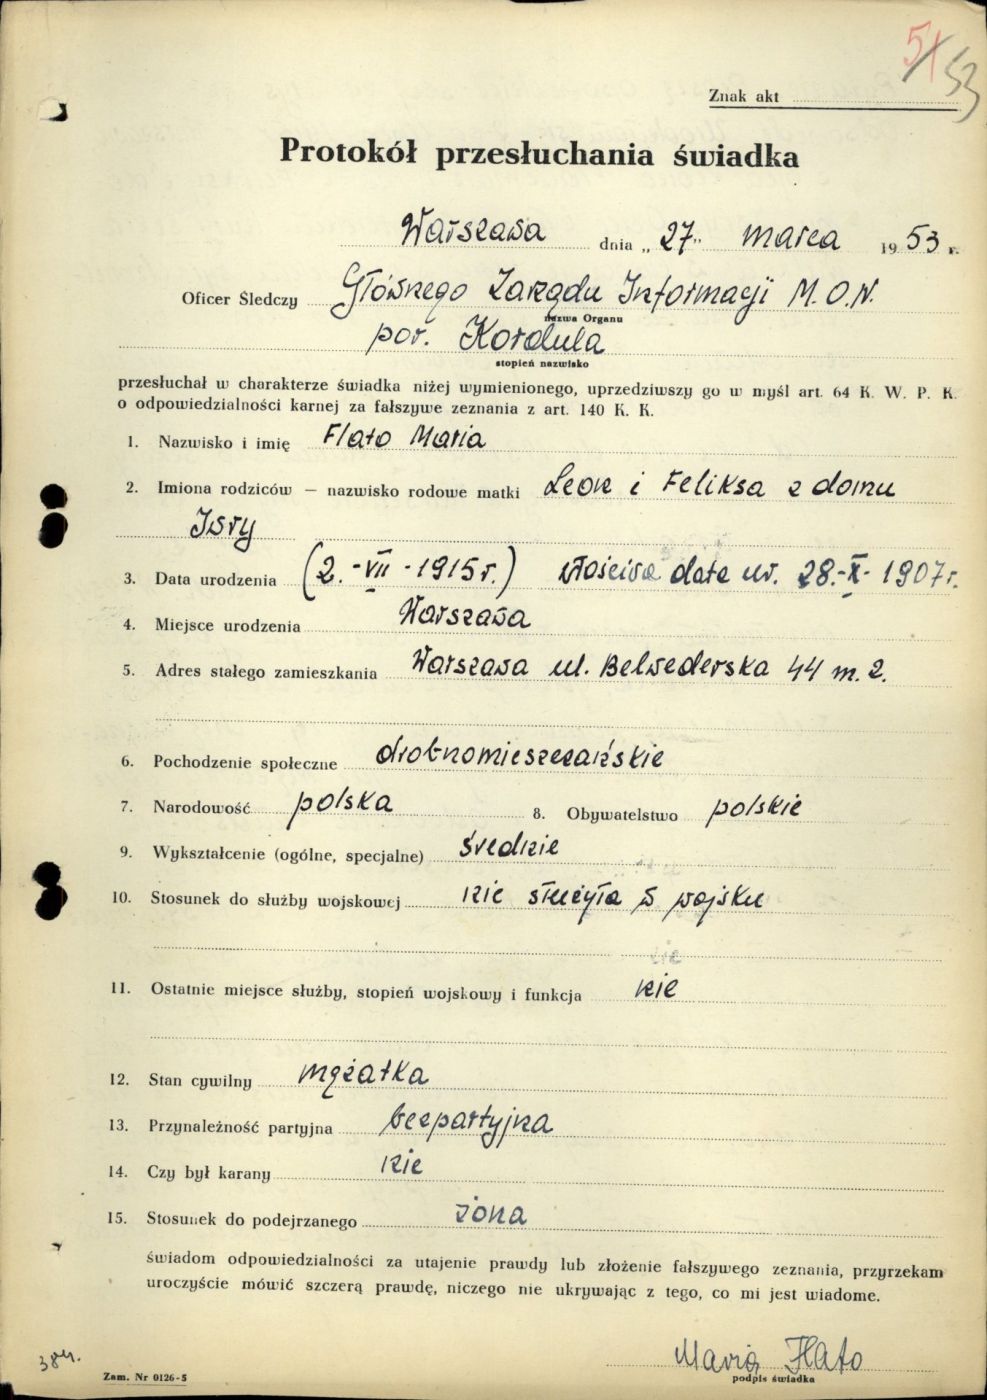 51 53
Znak akt
Protokół przesłuchania świadka
Warszawa dnia „27” marca 1953 r.
Oficer Śledczy Głównego Zarządu Informacji M.O.N.
nazwa Organu
por. Kordula
stopień nazwisko
przesłuchał w charakterze świadka niżej wymienionego, uprzedziwszy go w myśl art. 64 K. W. P. K.
o odpowiedzialności karnej za fałszywe zeznania z art. 140 K. K.
1. Nazwisko i imię Flato Maria
2. Imiona rodziców – nazwisko rodowe matki Leon i Feliksa z domu
3. Data urodzenia (2.-VII-1915r.) właściwa data ur. 28.-X-1907r.
4. Miejsce urodzenia Warszawa
5. Adres stałego zamieszkania Warszawa ul. Belwederska 44 m. 2.
6. Pochodzenie społeczne drobnomieszczańskie
7. Narodowość polska 8. Obywatelstwo polskie
9. Wykształcenie (ogólne, specjalne) średnie
10. Stosunek do służby wojskowej nie służyła w wojsku
11. Ostatnie miejsce służby, stopień wojskowy i funkcja nie
12. Stan cywilny mężatka
13. Przynależność partyjna bezpartyjna
14. Czy był karany nie
15. Stosunek do podejrzanego żona
świadom odpowiedzialności za utajenie prawdy lub złożenie fałszywego zeznania, przyrzekam
uroczyście mówić szczerą prawdę, niczego nie ukrywając z tego, co mi jest wiadome.
Maria Flato
podpis świadka
Zam. Nr 0126-5